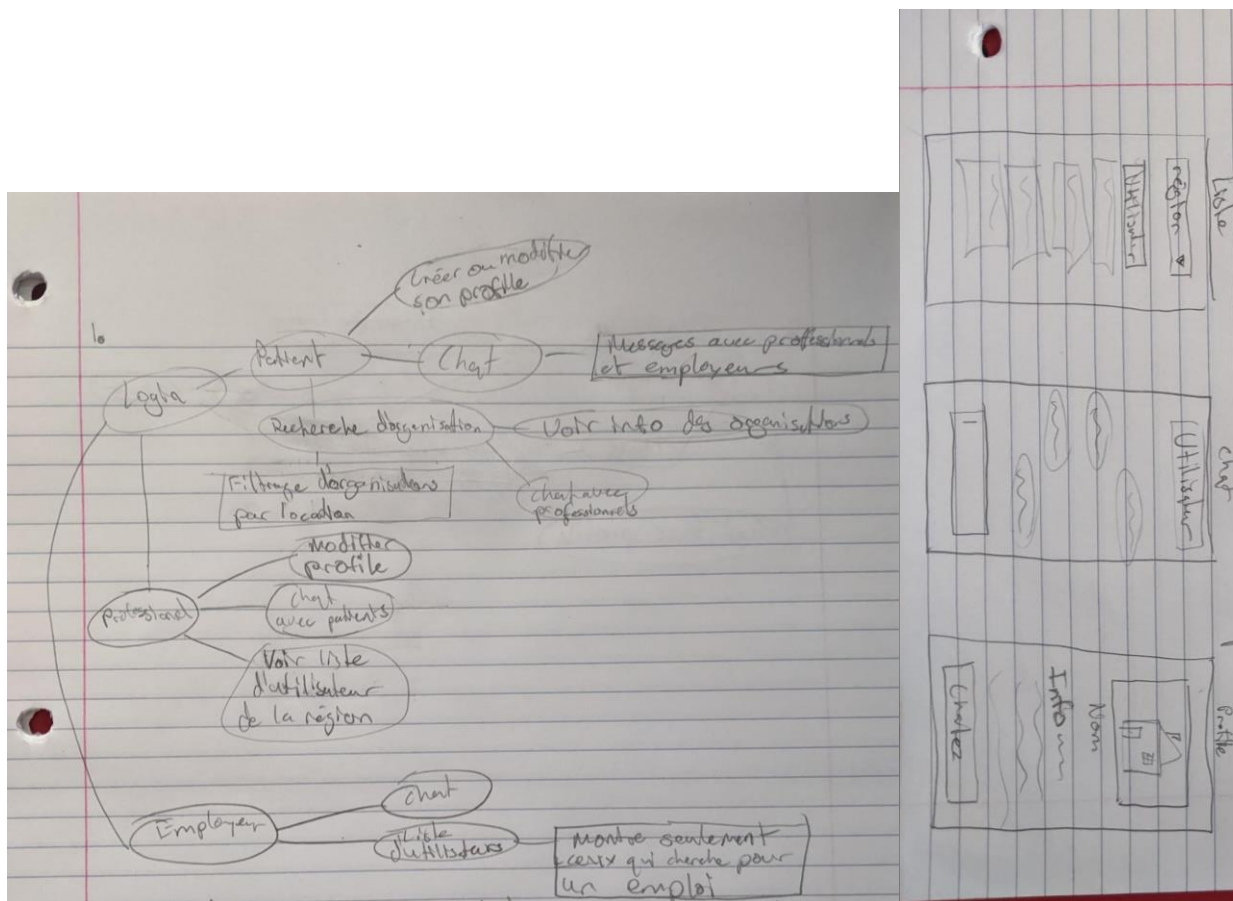 Créer ou modifier
son profile
1.
Patient
Chat
Messages avec professionnels
et employeurs
Login
Recherche d'organisation
Voir info des organisations
Filtrage d'organisations
par location
chat avec
professionnels
modifier
profile
Professionel
chat
avec patients
Voir liste
d'utilisateur
de la région
Employeur
chat
Liste
d'utilisateurs
montre seulement
ceux qui cherche pour
un emploi
Liste
région
Utilisateur
chat
Utilisateur
Profile
Nom
Info
Chatez